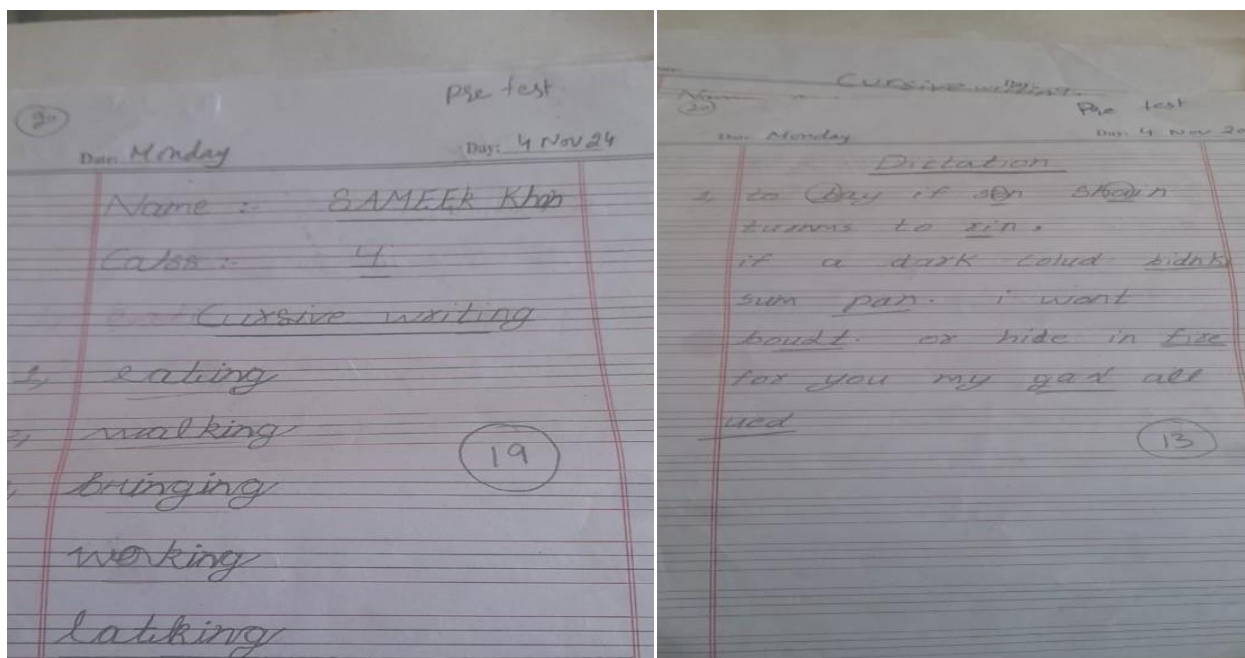 20
Pre test
Date: Monday Day: 4 Nov 24
Name :- SAMEER Khan
Calss :- 4
Cursive writing
1, eating
2, walking
bringing
19
working
latiking
Cursive writing.
20
Pre test
Date: Monday Day: 4 Nov 20
Dictation
1, to Bay if son shoun
turnns to rin.
if a dark colud bidnk
sum pan. i want
boudt. or hide in fire
for you my gad all
ued
13